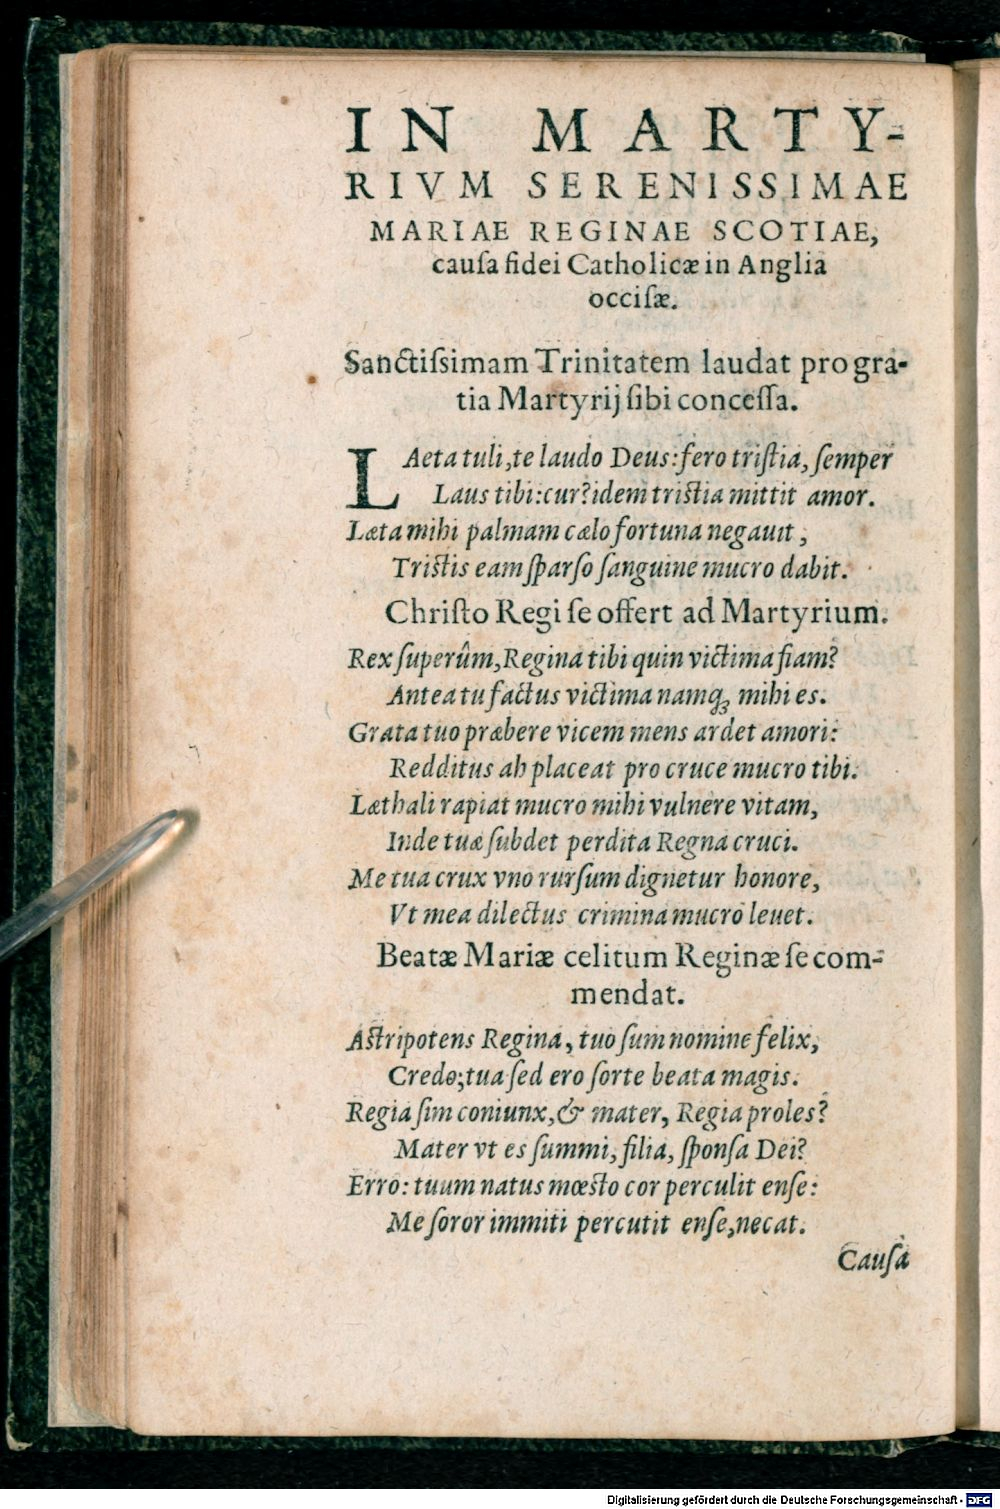 IN MARTY-
RIVM SERENISSIMAE
MARIAE REGINAE SCOTIAE,
cauſa fidei Catholicæ in Anglia
occiſæ.
Sanctiſsimam Trinitatem laudat pro gra-
tia Martyrij ſibi conceſſa.
LAeta tuli, te laudo Deus: fero triſtia, ſemper
Laus tibi: cur? idem tristia mittit amor.
Læta mihi palmam cælo fortuna negauit,
Tristis eam ſparſo ſanguine mucro dabit.
Chriſto Regi ſe offert ad Martyrium.
Rex ſuperûm, Regina tibi quin victima fiam?
Antea tu factus victima namq; mihi es.
Grata tuo præbere vicem mens ardet amori:
Redditus ah placeat pro cruce mucro tibi.
Læthali rapiat mucro mihi vulnere vitam,
Inde tuæ ſubdet perdita Regna cruci.
Me tua crux vno rurſum dignetur honore,
Vt mea dilectus crimina mucro leuet.
Beatæ Mariæ celitum Reginæ ſe com-
mendat.
Aſtripotens Regina, tuo ſum nomine felix,
Credo; tua ſed ero ſorte beata magis.
Regia ſim coniunx, & mater, Regia proles?
Mater vt es ſummi, filia, ſponſa Dei?
Erro: tuum natus mœsto cor perculit enſe:
Me ſoror immiti percutit enſe, necat.
Cauſa
Digitalisierung gefördert durch die Deutsche Forschungsgemeinschaft - DFG